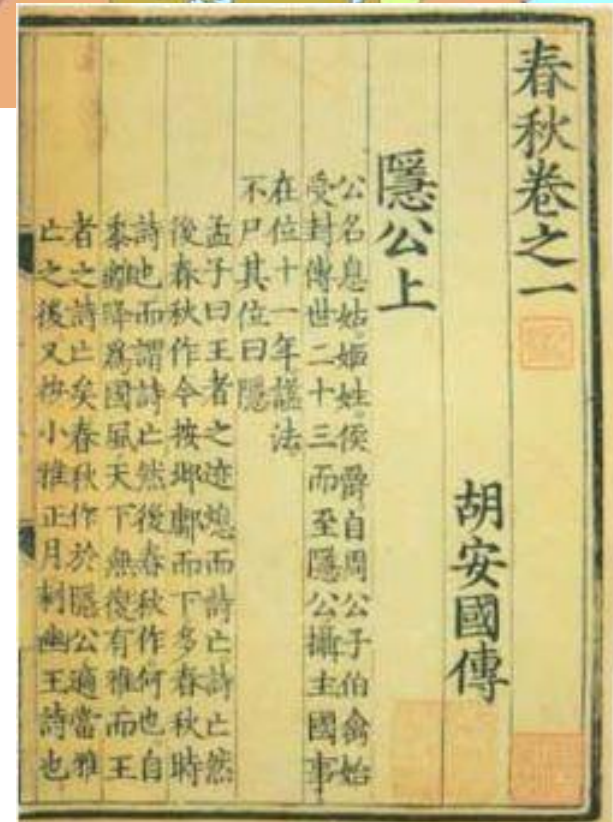 春秋卷之一
胡安國傳
隱公上
公名息姑姬姓侯爵自周公子伯禽始
受封傳世二十三而至隱公攝主國事
在位十一年謚法
不尸其位曰隱
孟子曰王者之迹熄而詩亡詩亡然
後春秋作今按邶鄘而下多春秋時
詩也而謂詩亡然後春秋作何也自
黍離降爲國風天下無復有雅而王
者之詩亡矣春秋作於隱公適當雅
亡之後又按小雅正月刺幽王詩也